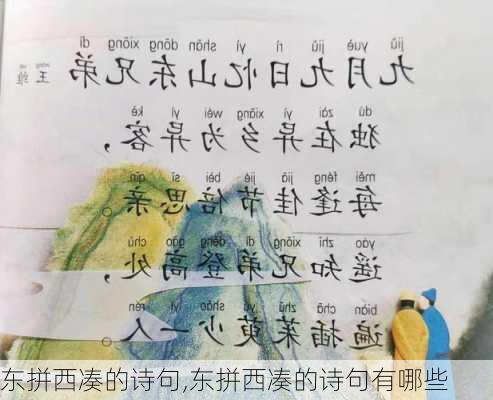 jiǔ yuè jiǔ rì yì shān dōng xiōng dì
九月九日忆山东兄弟 王维
dú zài yì xiāng wéi yì kè
独在异乡为异客，
měi féng jiā jié bèi sī qīn
每逢佳节倍思亲。
yáo zhī xiōng dì dēng gāo chù
遥知兄弟登高处，
biàn chā zhū yú shǎo yì rén
遍插茱萸少一人
东拼西凑的诗句,东拼西凑的诗句有哪些